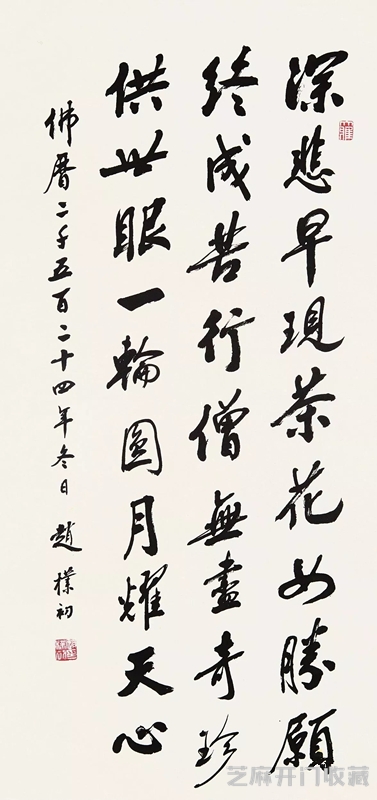 深悲早現茶花女勝願
終成苦行僧無盡奇珍
供世眼一輪圓月耀天心
佛曆二千五百二十四年冬日 趙樸初
芝麻开门收藏